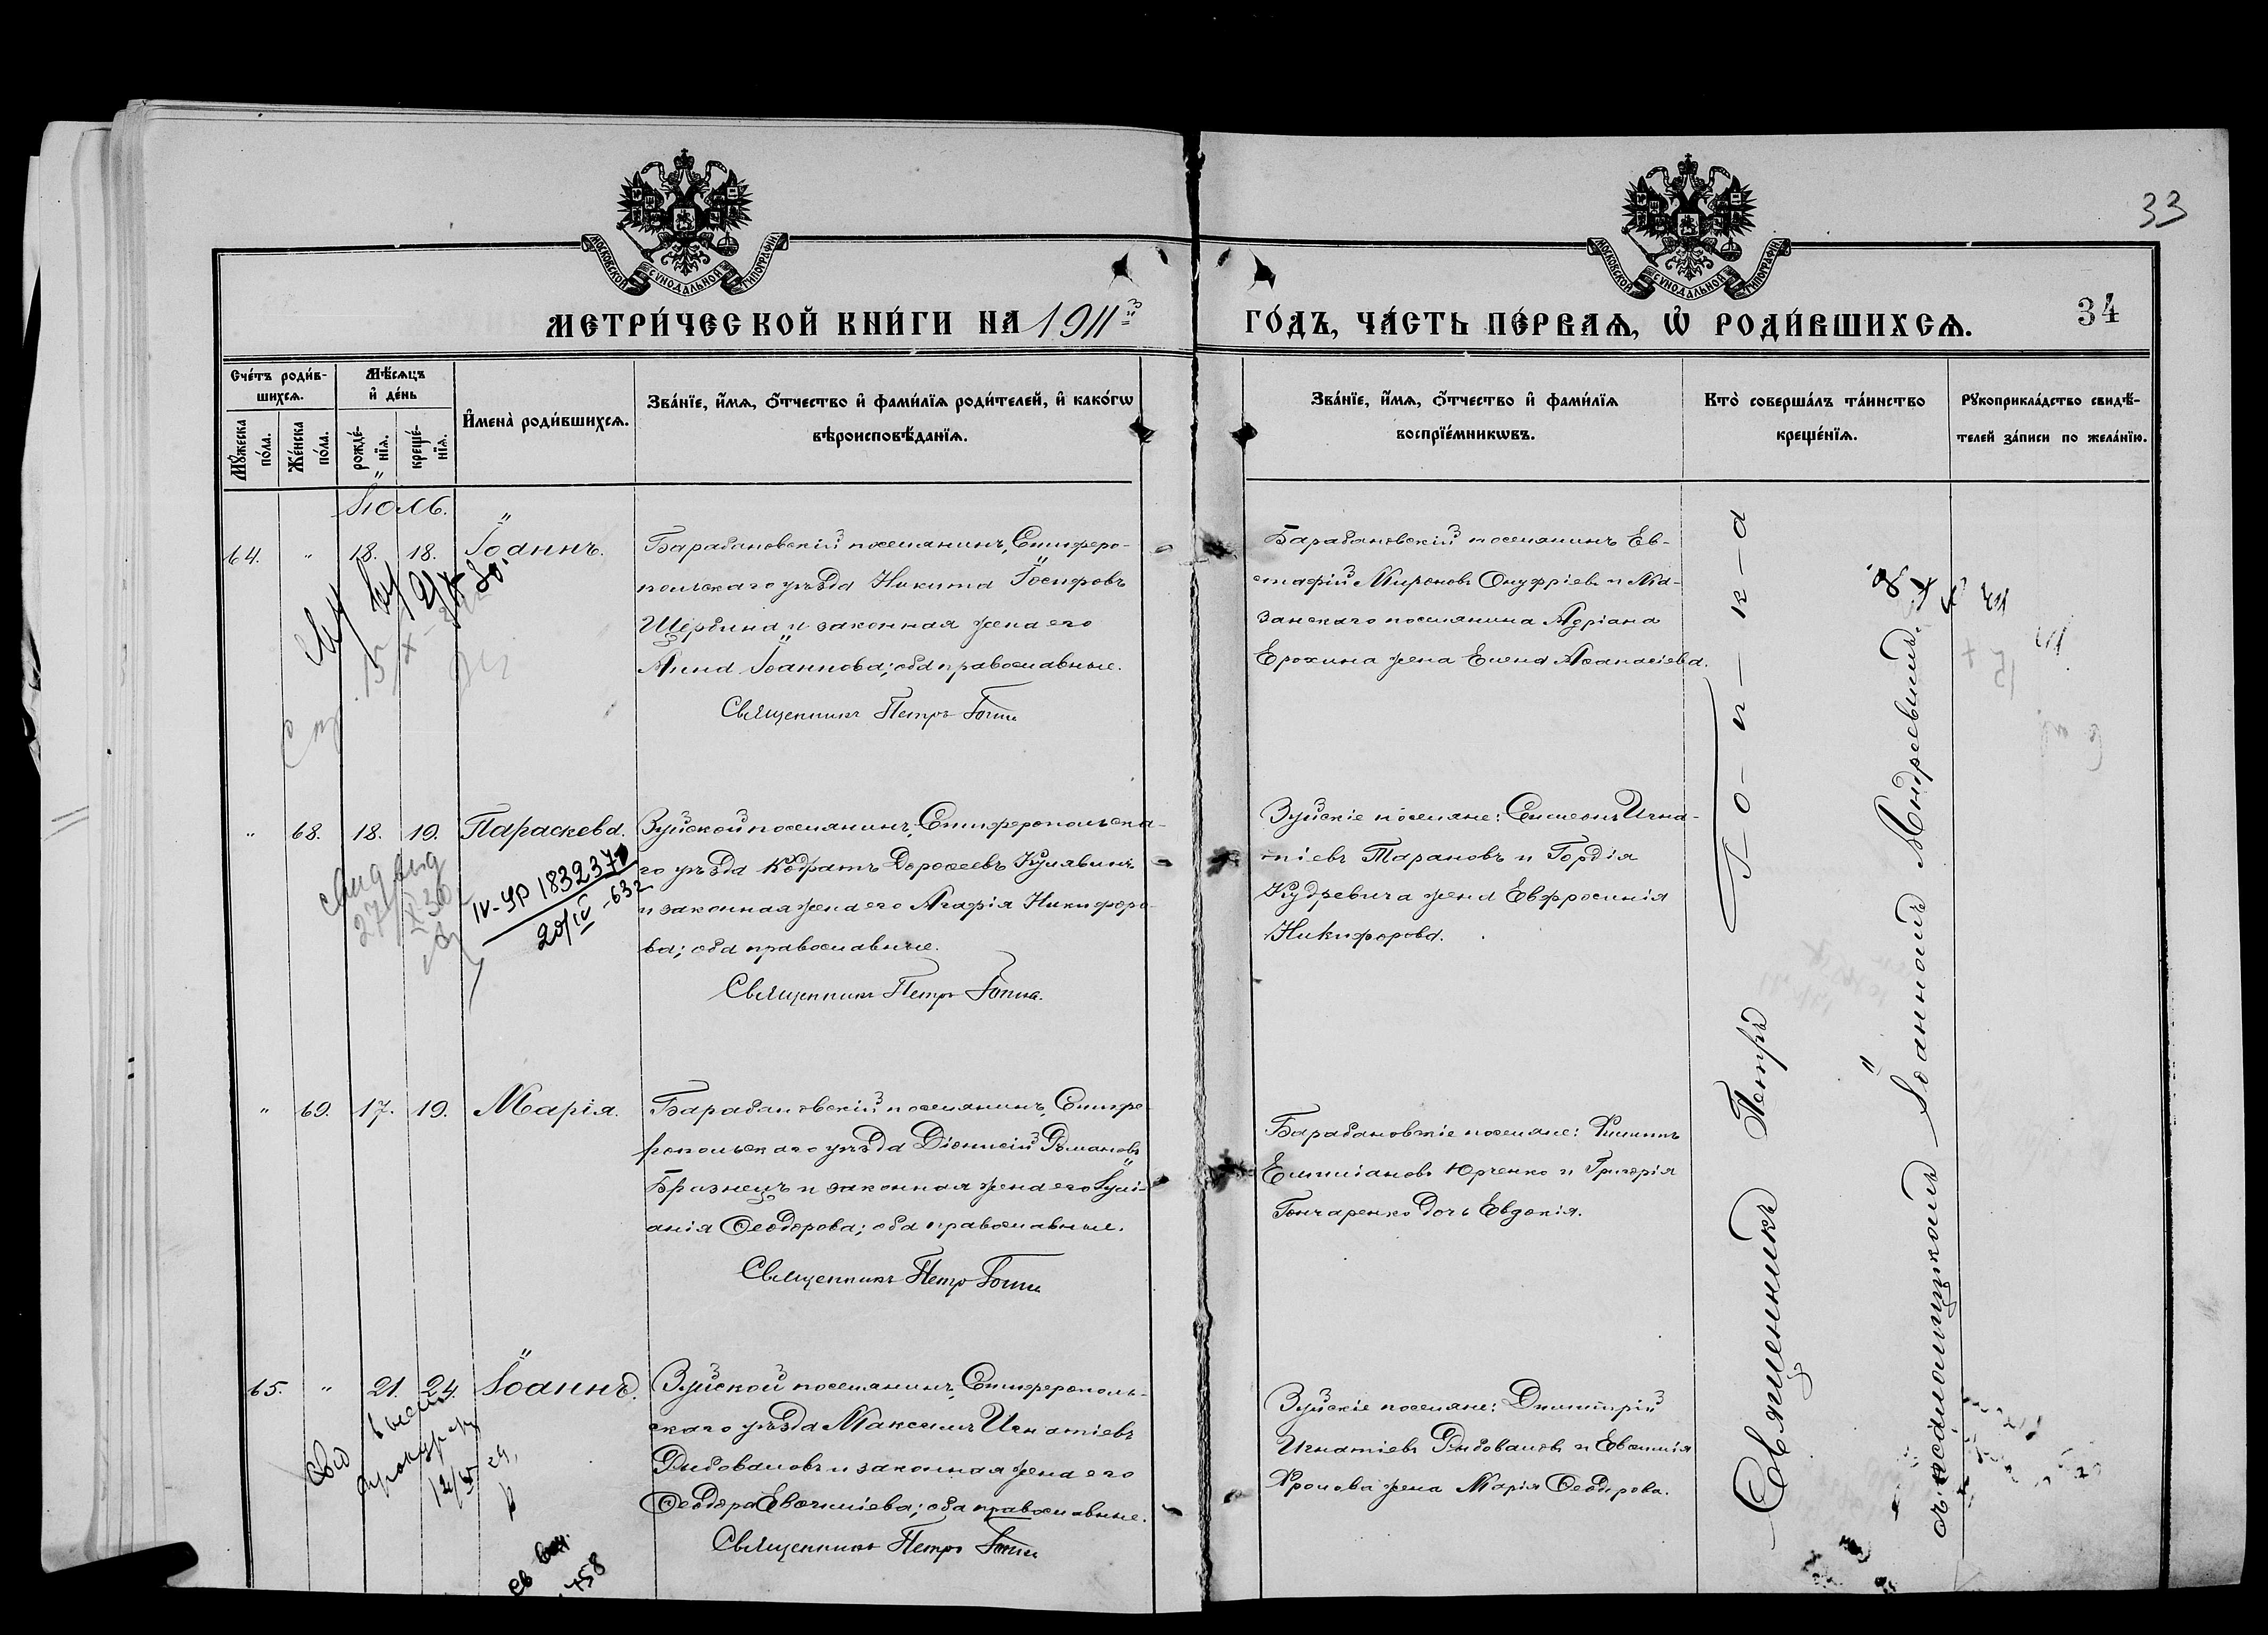 МОСКОВСКОЙ СѴНОДАЛЬНОЙ ТИПОГРАФІИ
МОСКОВСКОЙ СѴНОДАЛЬНОЙ ТИПОГРАФІИ
33
34
МЕТРИ́ЧЕСКОЙ КНИ́ГИ НА 1911й
ГО́ДЪ, ЧА́СТЬ ПЕ́РВАѦ, Ѽ РОДИ́ВШИХСѦ.
Сче́тъ роди́в-
шихсѧ.
Мꙋ́жеска
по́ла.
Же́нска
по́ла.
Мѣ́сѧцъ
и҆ де́нь
рожде́-
нїѧ.
креще́-
нїѧ.
И҆мена̀ роди́вшихсѧ.
Зва́нїе, и҆́мѧ, ѻ҆́тчество и҆ фами́лїѧ роди́телей, и҆ како́гѡ
вѣроисповѣ́данїѧ.
Зва́нїе, и҆́мѧ, ѻ҆́тчество и҆ фами́лїѧ
воспрїе́мникѡвъ.
Кто̀ соверша́лъ та́инство
креще́нїѧ.
Рꙋкоприкла́дство свидѣ́-
телей за́писи по жела́нїю.
Іюль.
64. " 18. 18. Іоаннъ.
Барабановскій поселянинъ, Симферо-
польскаго уѣзда Никита Іосифовъ
Щербина и законная жена его
Анна Іоаннова; оба православные.
Священникъ Петръ Гопика
Барабановскій поселянинъ Ев-
стафій Мироновъ Онуфріевъ и Ма-
занскаго поселянина Адріана
Ерохина жена Елена Аѳанасіева.
" 68. 18. 19. Параскева.
IV-УР 1832370
20/IV-632
Зуйской поселянинъ, Симферопольска-
го уѣзда Кодратъ Дороѳеевъ Кулявинъ
и законная жена его Агафія Никифоро-
ва; оба православные.
Священникъ Петръ Гопика.
Зуйскіе поселяне: Симеонъ Игна-
тіевъ Тарановъ и Гордія
Кудревича жена Евфросинія
Никифорова.
" 69. 17. 19. Марія.
Барабановскій поселянинъ, Симфе-
ропольскаго уѣзда Діонисій Романовъ
Бразнецъ и законная жена его Іулі-
анія Ѳеодорова; оба православные.
Священникъ Петръ Гопика
Барабановскіе поселяне: Филиппъ
Емиліановъ Юрченко и Григорія
Гончаренко дочь Евдокія.
65. " 21. 24. Іоаннъ.
Зуйской поселянинъ, Симферополь-
скаго уѣзда Максимъ Игнатіевъ
Рыбоваловъ и законная жена его
Ѳеодора Евѳиміева; оба православные.
Священникъ Петръ Гопика
Зуйскіе поселяне: Димитрій
Игнатіевъ Рыбоваловъ и Евѳимія
Фролова жена Марія Ѳеодорова.
Священникъ Петръ Г-о-п-и-к-а
съ псаломщикомъ Іоанномъ Андреевымъ